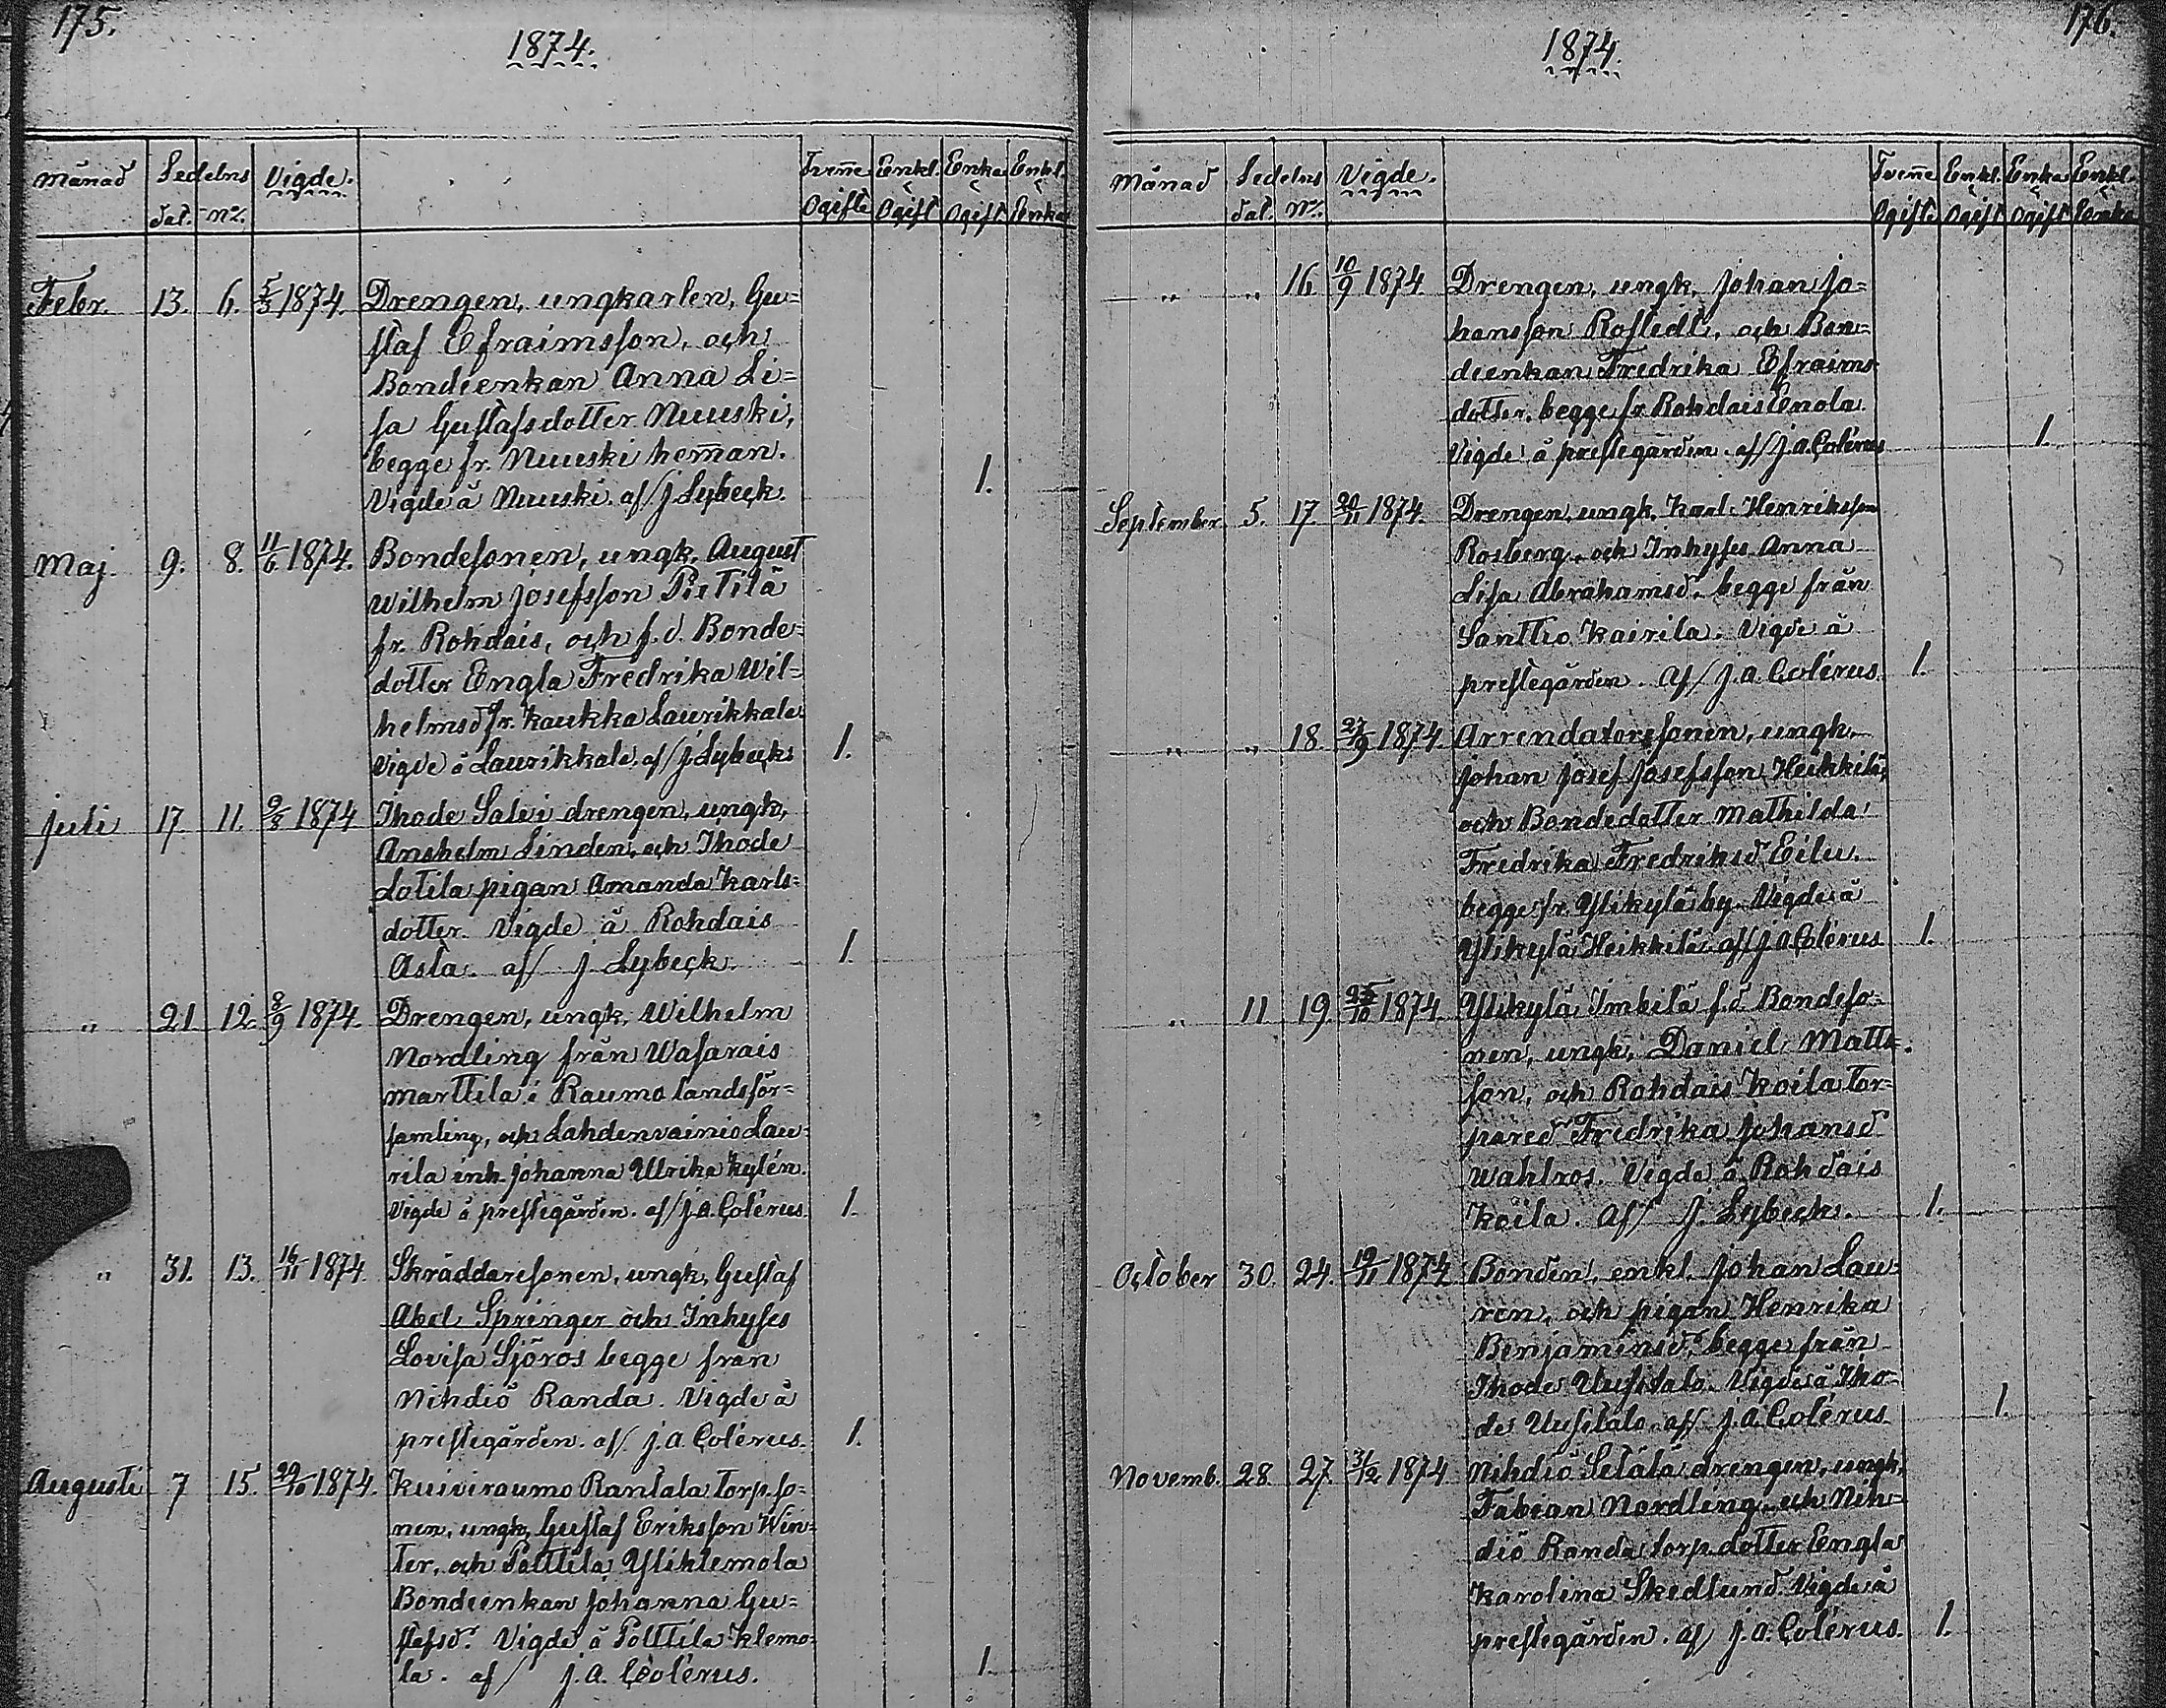 175.
1874.
Månad Sedelns Vigde. Tvenne Enkl. Enka Enkl.
dat. No. Ogifte Ogift Ogift Enka
Febr. 13. 6. 5/3 1874. Drengen, ungkarlen, Gu=
staf Efraimsson, och
Bondeenkan Anna Li=
sa Gustafsdotter Nuuski,
begge fr. Nuuski heman.
Vigde å Nuuski. af/ J. Lybeck. 1.
Maj. 9. 8. 11/6 1874. Bondesonen, ungk. August
Wilhelm Josefsson Pietilä
fr. Rohdais, och f.d. Bonde=
dotter Engla Fredrika Wil=
helmsd. fr. Kaukka Laurikkala
Vigde å Laurikkala. af/ J. Lybeck. 1.
Juli 17. 11. 9/8 1874 Ihode Salvi drengen, ungk,
Anshelm Linden, och Ihode
Lotila pigan Amanda Karls=
dotter. Vigde å Rohdais
Asta. af/ J. Lybeck. 1.
" 21 12. 8/9 1874. Drengen, ungk, Wilhelm
Nordling från Wasarais
marttila i Raumo landsför=
samling, och Lahdenvainio Lau=
rila inh. Johanna Ulrika Kylén.
Vigde å prestegården. af/ J.A. Colérus. 1.
" 31. 13. 16/11 1874 Skräddaresonen, ungk, Gustaf
Abel Springer och Inhyses
Lovisa Sjöros begge från
Nihdiö Randa. Vigde å
prestegården. af/ J.A. Colérus. 1.
Augusti 7 15. 29/10 1874. Kuiviraumo Rantala torp.so=
nen, ungk, Gustaf Eriksson Win=
ter, och Polttila Yliklemola
Bondeenkan Johanna Gu=
stafsd. Vigde å Polttila Klemo=
la. af/ J.A. Colérus. 1.
176.
1874
Månad Sedelns Vigde. Tvenne Enkl. Enka Enkl.
dat. No. Ogifte Ogift Ogift Enka
" " 16. 10/9 1874 Drengen, ungk. Johan Jo=
hansson Rostedt, och Bon=
deenkan Fredrika Efraims=
dotter, begge fr. Rohdais Enola.
Vigde å prestegården. af/ J.A. Colérus 1.
September. 5. 17. 20/11 1874. Drengen, ungk. Karl Henriksson
Rosberg, och Inhyses Anna
Lisa Abrahamsd. begge från
Santtio Kairila. Vigde å
prestegården. Af/ J.A. Colérus. 1.
" " 18. 27/9 1874. Arrendatoressonen, ungk.
Johan Josef Josefsson Heikkilä,
och Bondedotter Mathilda
Fredrika Fredriksd. Eilu.
begge fr. Ylikylä by. Vigde å
Ylikylä Heikkilä. af/ J.A. Colérus 1.
" 11 19. 25/10 1874 Ylikylä Imbilä f.d. Bondeso=
nen, ungk. Daniel Matts=
son, och Rohdais Koila tor=
pared. Fredrika Johansd
Wahlros. Vigde å Rohdais
Koila. Af/ J. Lybeck. 1.
October 30. 24. 19/11 1874 Bonden, enkl. Johan Lau=
ren, och pigan Henrika
Benjaminsd. begge från
Ihode Uusitalo. Vigde å Iho=
de Uusitalo. af/ J.A. Colérus 1.
Novemb. 28. 27. 31/12 1874 Nihdiö Setälä drengen, ungk,
Fabian Nordling, och Nih=
diö Randa torp.dotter Engla
Karolina Skedlund. Vigde å
prestegården. af/ J.A. Colérus. 1.